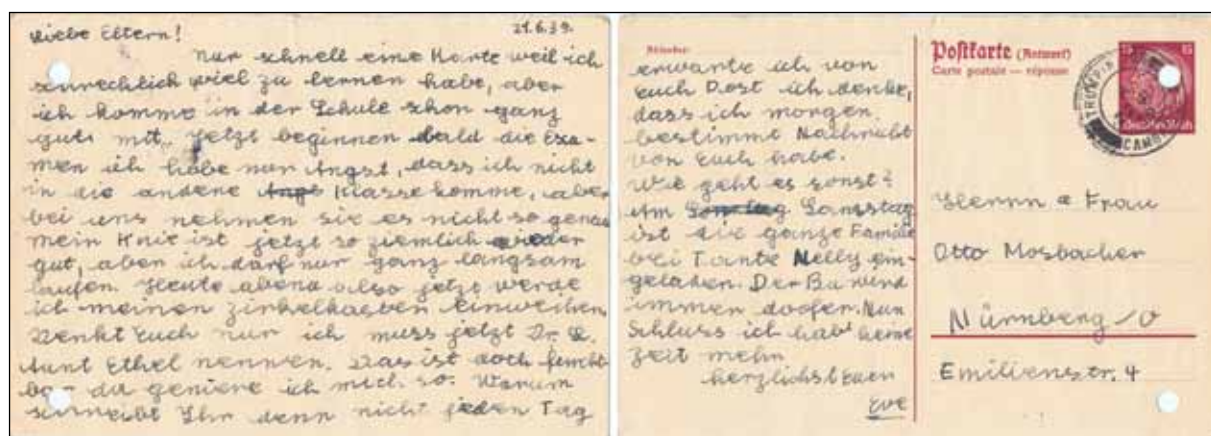 Liebe Eltern! 21.6.39.
Nur schnell eine Karte weil ich
schrecklich viel zu lernen habe, aber
ich komme in der Schule schon ganz
gut mit. Jetzt beginnen bald die Exa-
men ich habe nur Angst, dass ich nicht
in die andere Klasse komme, aber
bei uns nehmen sie es nicht so genau
mein Knie ist jetzt so ziemlich wieder
gut, aber ich darf nur ganz langsam
laufen. Heute abend also jetzt werde
ich meinen Zirkelkasten einweihen
Denkt Euch nur ich muss jetzt Dr.
Aunt Ethel nennen. Das ist doch furcht-
bar da geniere ich mich so. Warum
schreibt Ihr denn nicht jeden Tag
Absender:
erwarte ich von
Euch Post ich denke,
dass ich morgen
bestimmt Nachricht
von Euch habe.
Wie geht es sonst?
Am Samstag
ist die ganze Familie
bei Tante Nelly ein-
geladen. Der Bu wird
immer doofer. Nun
Schluss ich hab keine
Zeit mehr
herzlichst Euer
Eve
Postkarte (Antwort)
Carte postale — réponse
15 15
Deutsches Reich
CAMB
Herrn & Frau
Otto Mosbacher
Nürnberg /O
Emilienstr. 4